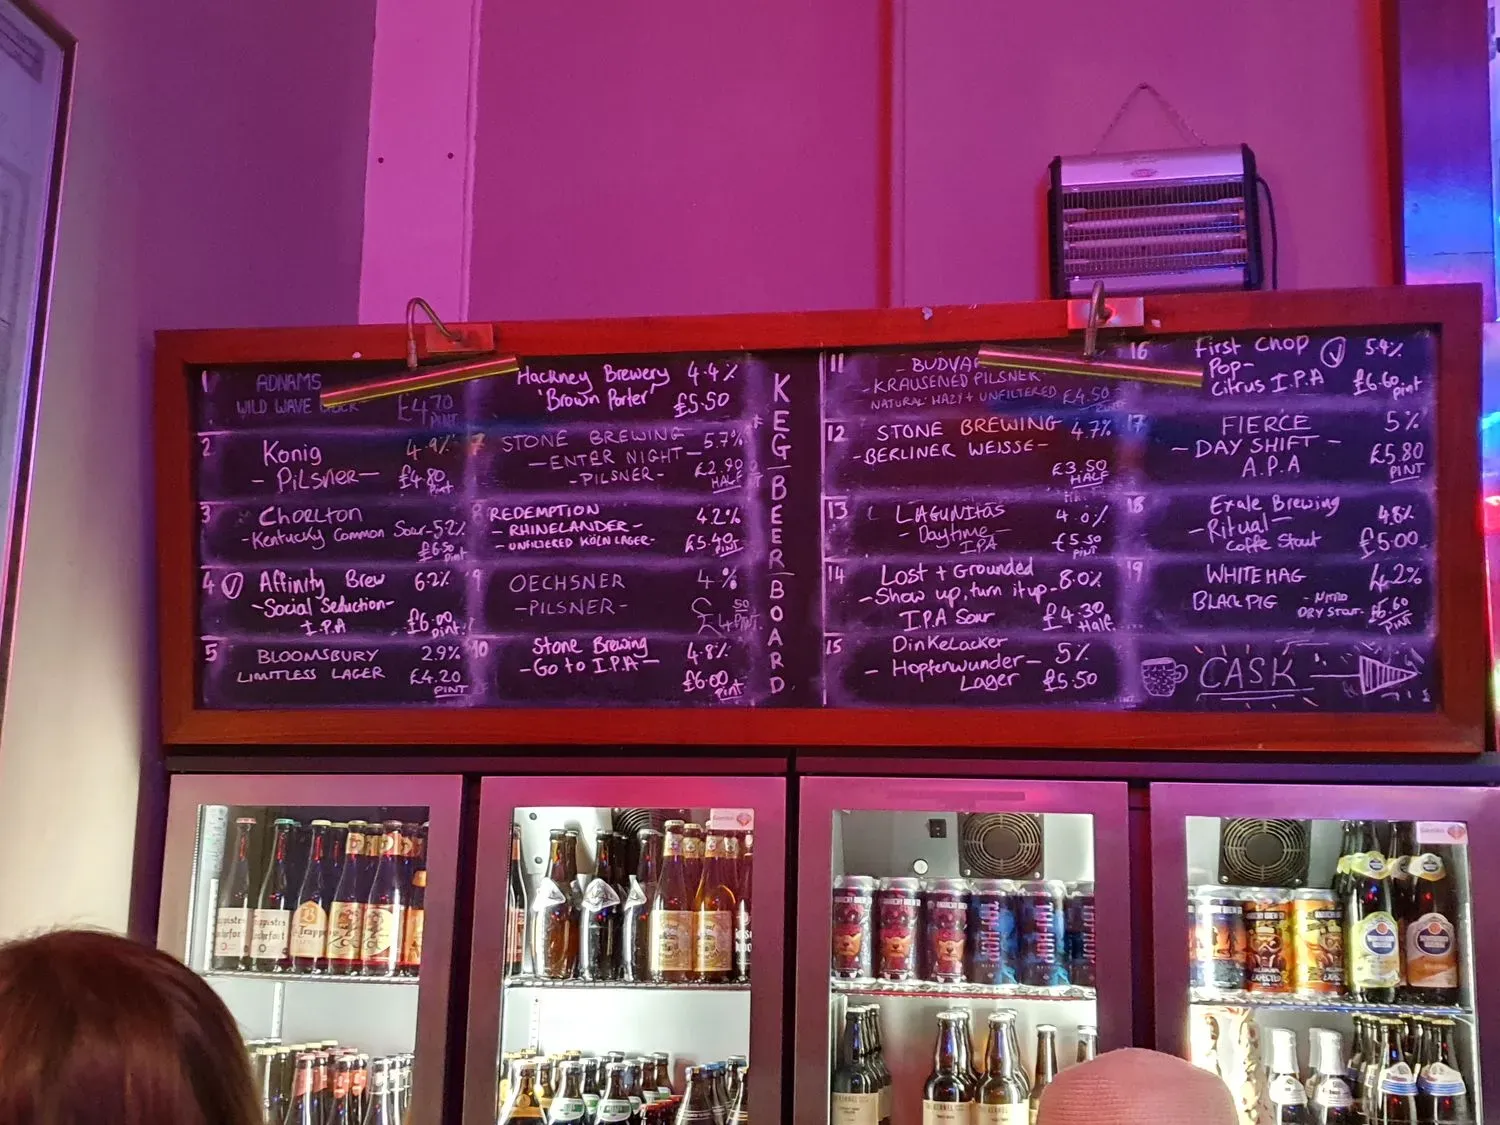 1
ADNAMS
WILD WAVE
£4.70
PINT
2
Konig 4.9%
- Pilsner -
£4.80
Pint
3
Chorlton
- Kentucky Common Sour - 5.2%
£6.50
Pint
4 Affinity Brew 6.2%
- Social Seduction -
I.P.A
£6.00
pint.
5
BLOOMSBURY 2.9%
LIMITLESS LAGER £4.20
PINT
Hackney Brewery 4.4%
'Brown Porter' £5.50
7
STONE BREWING 5.7%
- ENTER NIGHT -
- PILSNER - £2.90
HALF
8 REDEMPTION 4.2%
- RHINELANDER -
- UNFILTERED KÖLN LAGER - £5.40
PINT
9
OECHSNER 4%
- PILSNER -
10
Stone Brewing 4.8%
- Go to I.P.A -
£6.00
Pint
KEG BEER BOARD
11
BUDVAR
- KRAUSENED PILSNER
NATURAL HAZY + UNFILTERED £4.50
12 STONE BREWING 4.7%
- BERLINER WEISSE -
£3.50
HALF
13
LAGUNITAS 4.0%
- Daytime -
IPA
£5.50
PINT
14 Lost + Grounded 8.0%
- Show up, turn it up -
I.P.A Sour £4.30
Half.
15 Dinkelacker 5%
- Hopfenwunder -
Lager £5.50
16
First Chop 5.4%
Pop-
Citrus I.P.A £6.60 pint
17
FIERCE 5%
- DAY SHIFT -
A.P.A
£5.80
PINT
18
Exale Brewing 4.8%
- Ritual -
Coffe Stout £5.00
19
WHITE HAG 4.2%
BLACK PIG - NITRO
DRY STOUT - £5.60
PINT
CASK